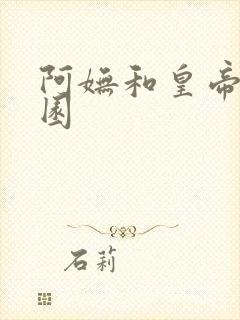 阿嫵和皇帝
園
石莉